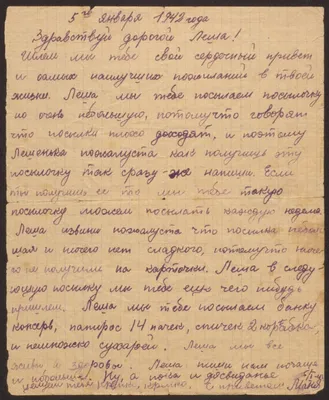 5го января 1942 года
Здравствуй дорогой Леша!
Шлем мы тебе свой сердечный привет
и самых наилучших пожеланий в твоей
жизни. Леша мы тебе посылаем посылочку
но очень маленькую, потому что говорят
что посылки плохо доходят, и поэтому
Лешенька пожалуста как получишь эту
посылочку так сразу-же напиши. Если
ты получишь ее то мы тебе такую
посылочку можем посылать каждую неделю.
Леша извини пожалуста что посылка неболь
шая и ничего нет сладкого, потому что ниче
го не получили на карточки. Леша в следу-
ющую посылку мы тебе еще чего нибудь
пришлем. Леша мы тебе посылаем банку
консерв, папирос 14 пачек, спичек 2 коробка,
и немножко сухарей. Леша мы все
живы и здоровы. Леша пиши нам почаще
и побольше. Ну, а пока и досвиданье
целуем тебя крепко, крепко. С приветом